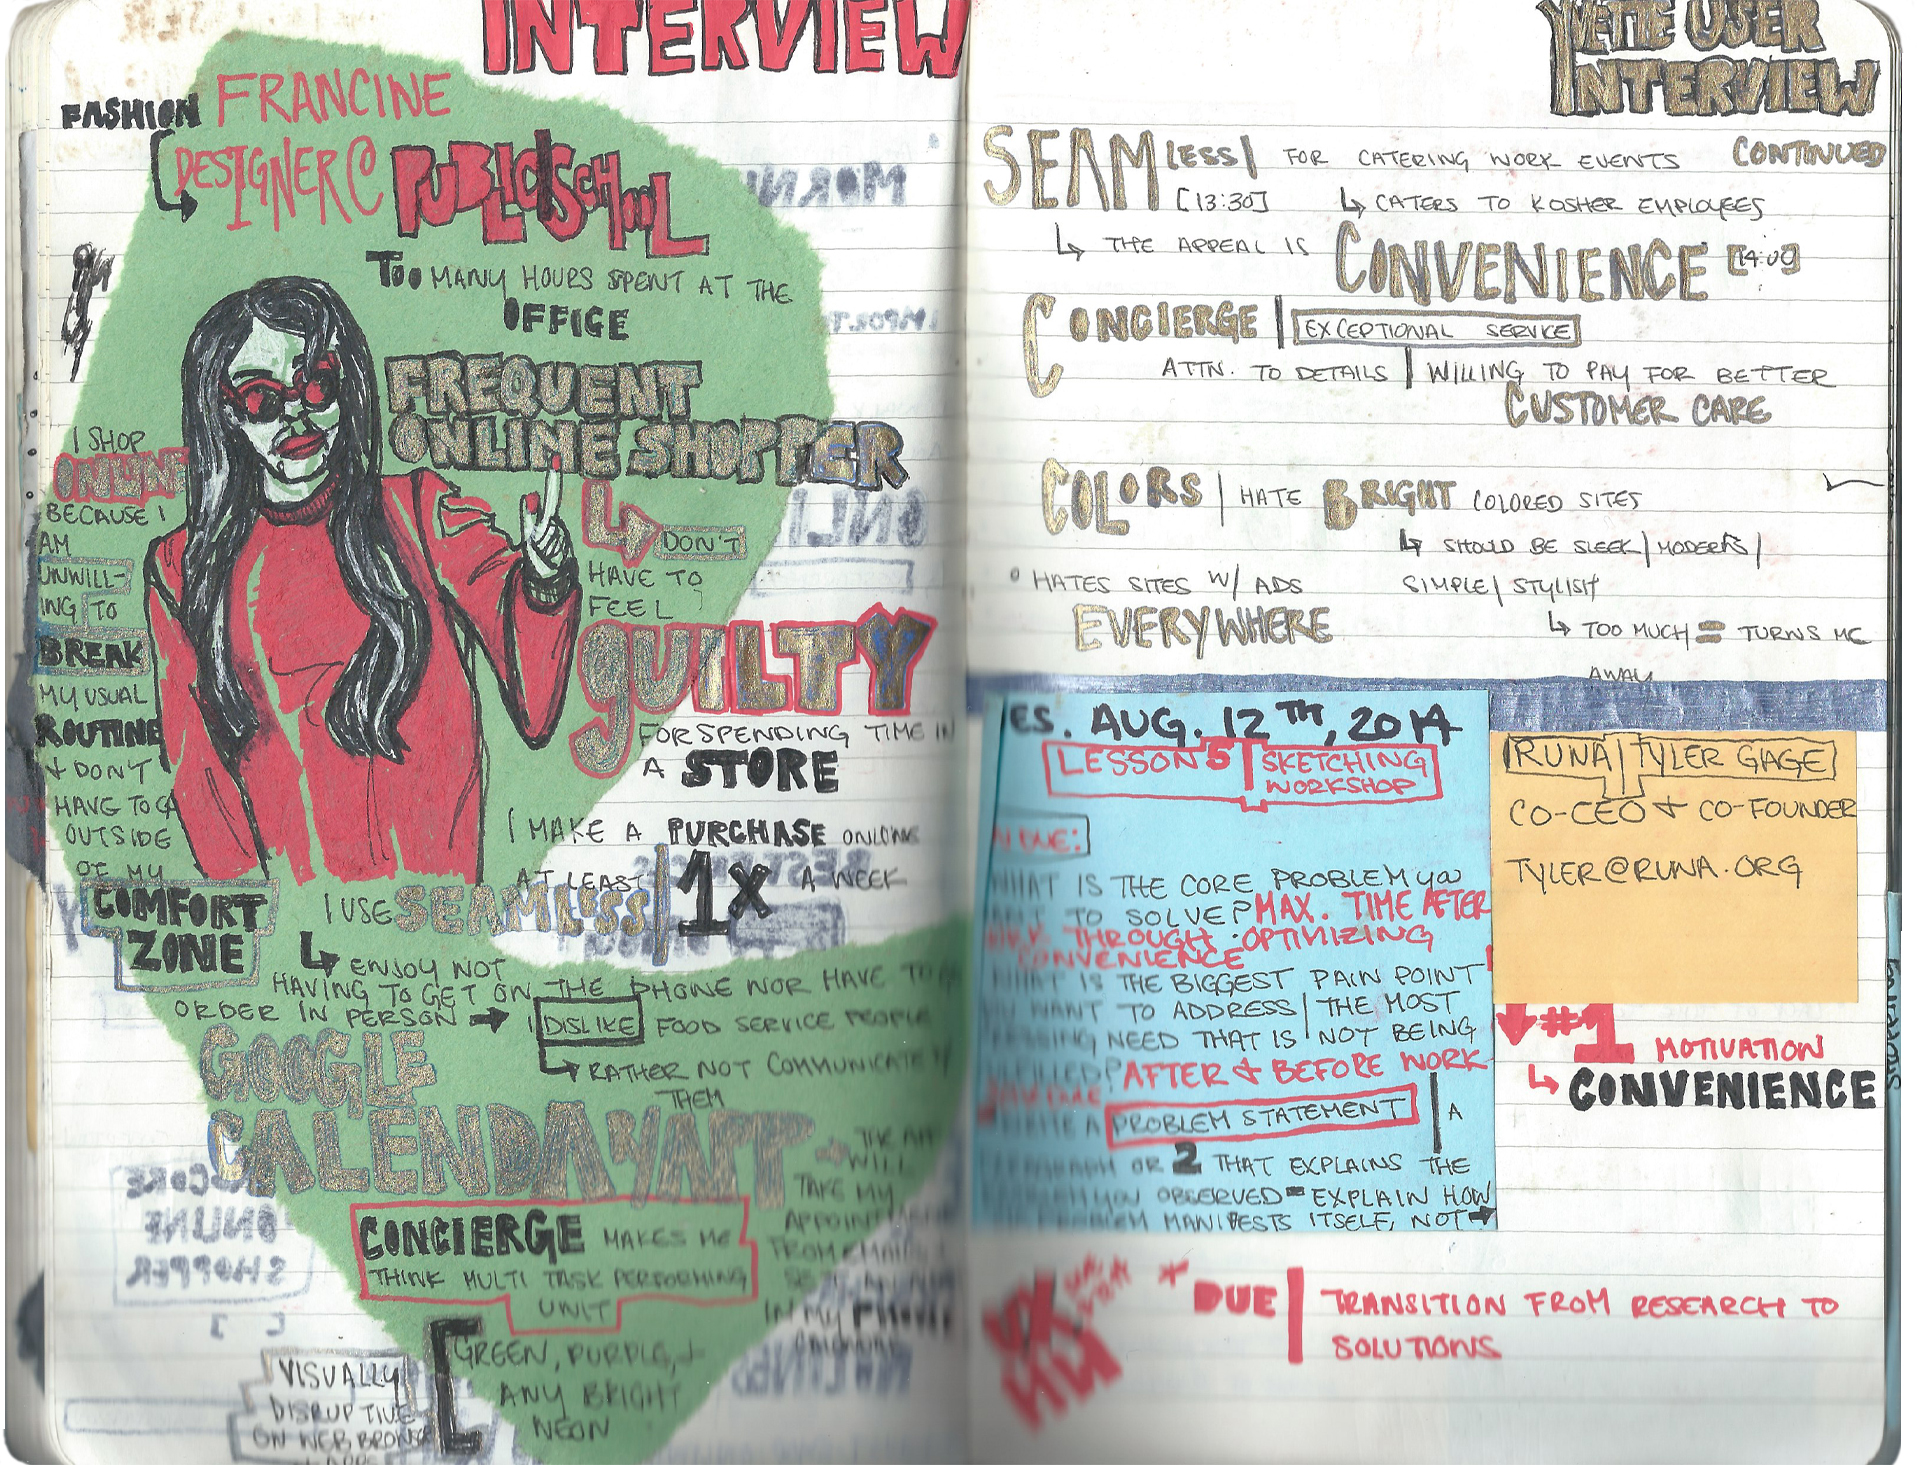 INTERVIEW
FASHION FRANCINE
DESIGNER @ PUBLIC SCHOOL
TOO MANY HOURS SPENT AT THE
OFFICE
FREQUENT
ONLINE SHOPPER
DON'T
HAVE TO
FEEL
GUILTY
FOR SPENDING TIME IN
A STORE
I SHOP
ONLINE
BECAUSE I
AM
UNWILL-
ING TO
BREAK
MY USUAL
ROUTINE
+ DON'T
HAVE TO GO
OUTSIDE
OF MY
COMFORT
ZONE
I MAKE A PURCHASE ONLINE
AT LEAST 1X A WEEK
I USE SEAMLESS
ENJOY NOT
HAVING TO GET ON THE PHONE NOR HAVE TO
ORDER IN PERSON → I DISLIKE FOOD SERVICE PEOPLE
RATHER NOT COMMUNICATE W/
THEM
GOOGLE
CALENDAY APP →
WILL
TAKE MY
FROM EMAIL
IN MY PHONE
CONCIERGE MAKES ME
THINK MULTI TASK PERFORMING
UNIT
VISUALLY
DISRUPTIVE
ON WEB BROWSE
GREEN, PURPLE, +
ANY BRIGHT
NEON
YVETTE USER
INTERVIEW
CONTINUED
SEAMLESS | FOR CATERING WORK EVENTS
[13:30] ↳ CATERS TO KOSHER EMPLOYEES
↳ THE APPEAL IS CONVENIENCE [14:00]
CONCIERGE | EXCEPTIONAL SERVICE
ATTN. TO DETAILS | WILLING TO PAY FOR BETTER
CUSTOMER CARE
COLORS | HATE BRIGHT COLORED SITES
↳ SHOULD BE SLEEK | MODERN |
SIMPLE | STYLISH
↳ TOO MUCH = TURNS ME
AWAY
° HATES SITES W/ ADS
EVERYWHERE
ES. AUG. 12TH, 2014
LESSON 5 | SKETCHING
WORKSHOP
WHAT IS THE CORE PROBLEM YOU
WANT TO SOLVE? MAX. TIME AFTER
WORK THROUGH OPTIMIZING
CONVENIENCE
WHAT IS THE BIGGEST PAIN POINT
YOU WANT TO ADDRESS | THE MOST
PRESSING NEED THAT IS NOT BEING
FULFILLED? AFTER + BEFORE WORK
WRITE A PROBLEM STATEMENT | A
PARAGRAPH OR 2 THAT EXPLAINS THE
PROBLEM YOU OBSERVED - EXPLAIN HOW
THE PROBLEM MANIFESTS ITSELF, NOT →
RUNA | TYLER GAGE
CO-CEO + CO-FOUNDER
TYLER@RUNA.ORG
#1 MOTIVATION
↳ CONVENIENCE
UX
HW
* DUE | TRANSITION FROM RESEARCH TO
SOLUTIONS